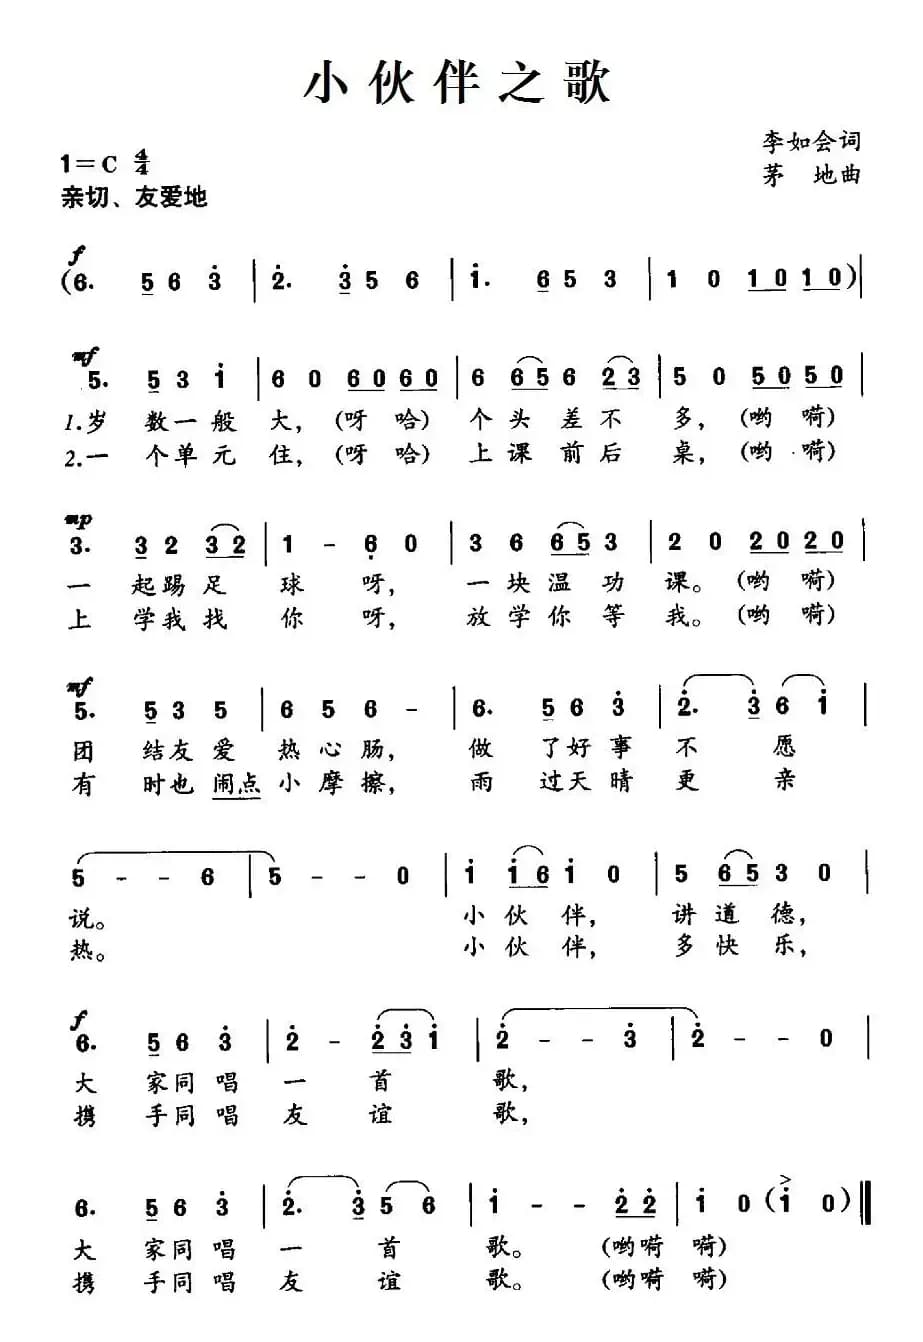 小伙伴之歌
李如会词
1=C 4/4
茅 地曲
亲切、友爱地
f
(6. 5 6 3̇ | 2̇. 3̇ 5 6 | 1̇. 6 5 3 | 1 0 1 0 1 0)|
mf
5. 5 3 1̇ | 6 0 6 0 6 0 | 6 6 5 6 2 3 | 5 0 5 0 5 0 |
1.岁 数一般 大,(呀 哈) 个头差不 多,(哟 嗬)
2.一 个单元 住,(呀 哈) 上课前后 桌,(哟 嗬)
mp
3. 3 2 3 2 | 1 - 6̣ 0 | 3 6 6 5 3 | 2 0 2 0 2 0 |
一 起踢足 球 呀, 一块温功 课。(哟 嗬)
上 学我找 你 呀, 放学你等 我。(哟 嗬)
mf
5. 5 3 5 | 6 5 6 - | 6. 5 6 3̇ | 2̇. 3̇ 6 1̇ |
团 结友爱 热心肠, 做 了好事 不 愿
有 时也闹点 小摩擦, 雨 过天晴 更 亲
5 - - 6 | 5 - - 0 | 1̇ 1̇ 6 1̇ 0 | 5 6 5 3 0 |
说。 小伙伴, 讲道德,
热。 小伙伴, 多快乐,
f
6. 5 6 3̇ | 2̇ - 2̇ 3̇ 1̇ | 2̇ - - 3̇ | 2̇ - - 0 |
大 家同唱 一 首 歌,
携 手同唱 友 谊 歌,
6. 5 6 3̇ | 2̇. 3̇ 5 6 | 1̇ - - 2̇ 2̇ | 1̇ 0 (>1̇ 0) ‖
大 家同唱 一 首 歌。 (哟嗬 嗬)
携 手同唱 友 谊 歌。 (哟嗬 嗬)